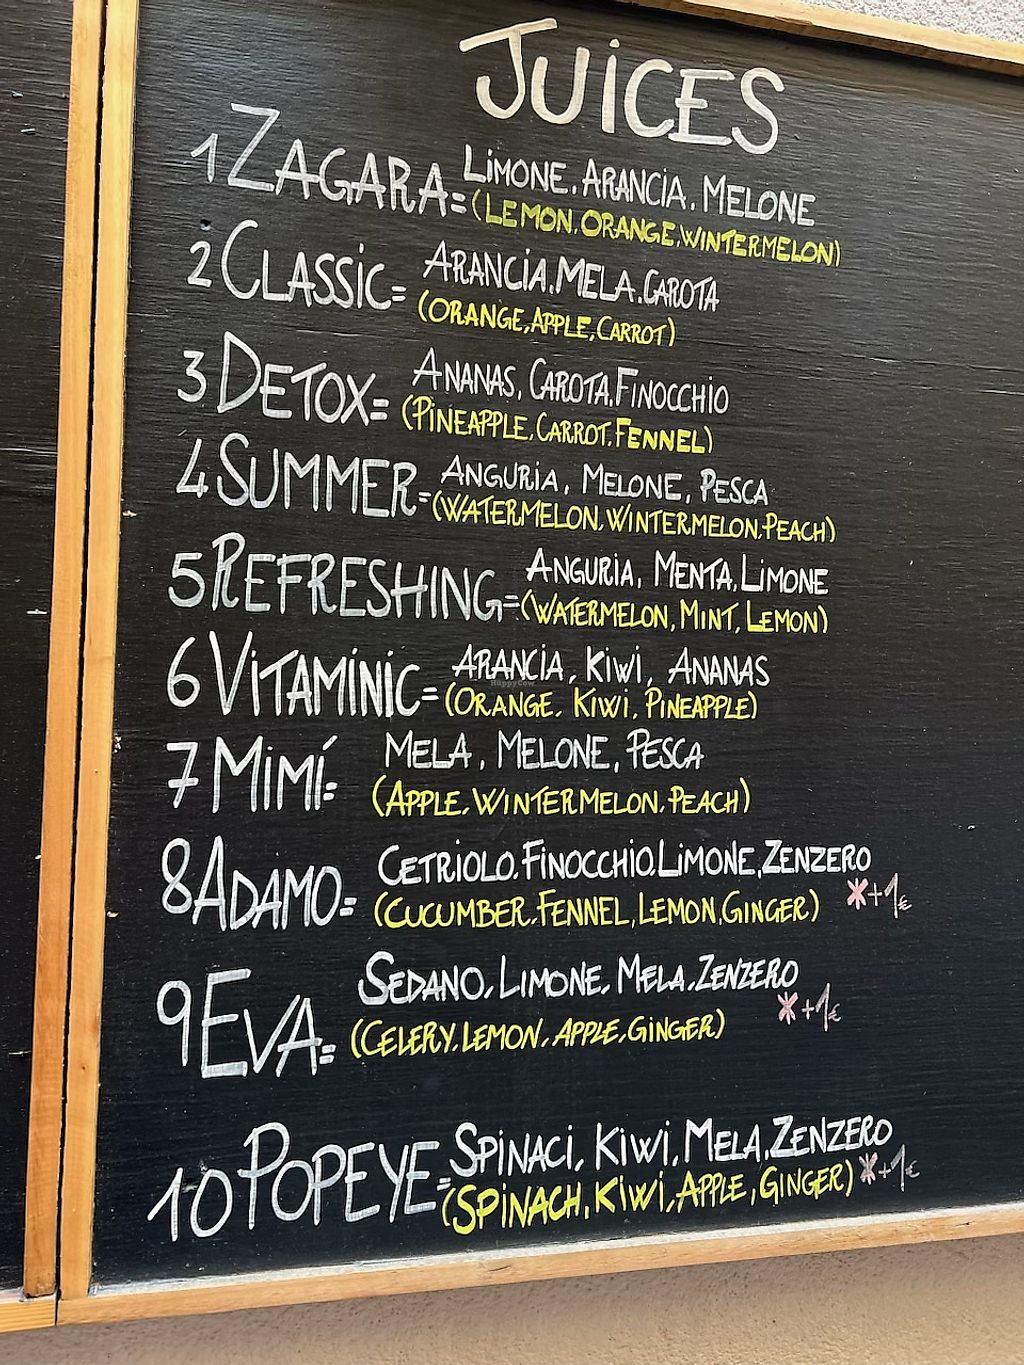 JUICES
1 ZAGARA= LIMONE, ARANCIA, MELONE
(LEMON, ORANGE, WINTERMELON)
2 CLASSIC= ARANCIA, MELA, CAROTA
(ORANGE, APPLE, CARROT)
3 DETOX= ANANAS, CAROTA, FINOCCHIO
(PINEAPPLE, CARROT, FENNEL)
4 SUMMER= ANGURIA, MELONE, PESCA
(WATERMELON, WINTERMELON, PEACH)
5 REFRESHING= ANGURIA, MENTA, LIMONE
(WATERMELON, MINT, LEMON)
6 VITAMINIC= ARANCIA, KIWI, ANANAS
HappyCow
(ORANGE, KIWI, PINEAPPLE)
7 MIMÍ= MELA, MELONE, PESCA
(APPLE, WINTERMELON, PEACH)
8 ADAMO= CETRIOLO, FINOCCHIO, LIMONE, ZENZERO
(CUCUMBER, FENNEL, LEMON, GINGER) *+1€
9 EVA= SEDANO, LIMONE, MELA, ZENZERO
*+1€
(CELERY, LEMON, APPLE, GINGER)
10 POPEYE= SPINACI, KIWI, MELA, ZENZERO
(SPINACH, KIWI, APPLE, GINGER) *+1€